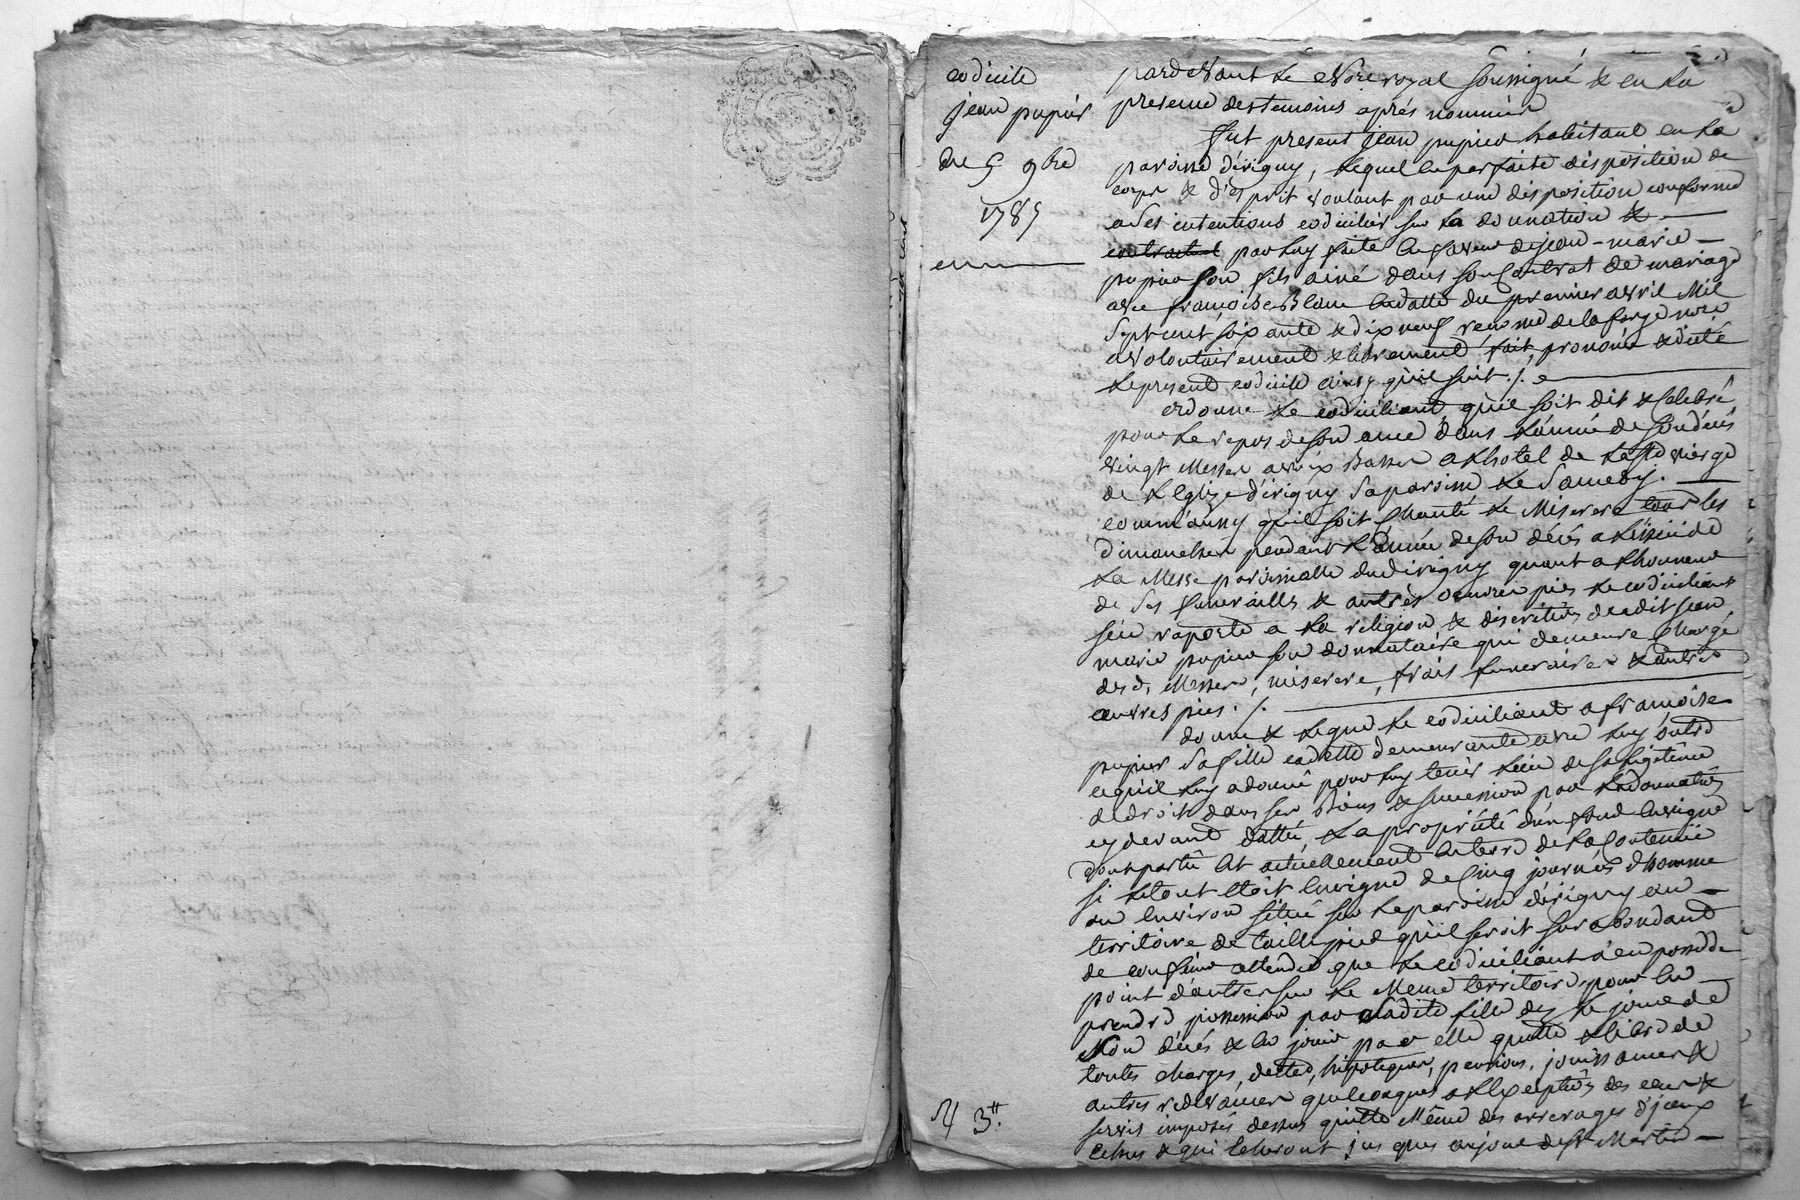 codicile
jean pupier
du 5 9bre
1785
pardevant le no.re royal soussigné & en la
presence des temoins aprés nommés
fut present jean pupier habitant en la
paroisse d'irigny, lequel en parfaite disposition de
corps & d'esprit voulant par une disposition conforme
a ses intentions codicilier sur la donnation &
par luy faite en faveur de jean-marie
pupier son fils ainé dans son Contrat de mariage
avec françoise Blanc en datte du premier avril Mil
sept cent soixante & dix neuf, reçu me de la forge no.re
a volontairement & librement fait, prononcé & dicté
le present codicile ainsy qu'il suit ./.
ordonne le codiciliant qu'il soit dit & Celebré
pour le repos de son ame dans l'année de son décés
vingt Messes a voix Basse a l'hotel de la ste vierge
de l'Eglize d'irigny sa paroisse le Samedy.
comm'aussy qu'il soit Chanté le Miserere tous les
dimanches pendant l'année de son décés a l'issüe de
la Messe paroissialle dud. irigny quant a l'honneur
de ses funerailles & autres oeuvres pies le codiciliant
s'en raporte a la religion & discretion dudit jean
marie pupier son donnataire qui demeure Chargé
desd. Messes, miserere, frais funeraires & autres
oeuvres pies ./.
donne & legue le codiciliant a françoise
pupier sa fille cadette demeurante avec luy outre
ce qu'il luy a donné pour luy tenir lieu de sa legitime
& droits dans ses biens & succession par la donnation
cy devant dattée, la propriété d'un fond en vigne
dont partie est actuellement en terre de la Contenüe
si le tout etoit en vigne de Cinq journées d'homme
ou Environ situé sur la paroisse d'irigny au
territoire de taillepied qu'il seroit surabondant
de confiner attendu que le codiciliant n'en possede
point d'autres sur le Meme territoire, pour en
prendre possession par ladite fille dez le jour de
son décés & en jouir par elle quitte & libre de
toutes charges, dettes, hipoteques, pensions, jouissances &
autres redevances quelconques a l'Exeption des cens &
servis imposés dessus quitte Même des arrerages d'jceux
Echus & qui Echeront jusques au jour de st Martin
3.tt